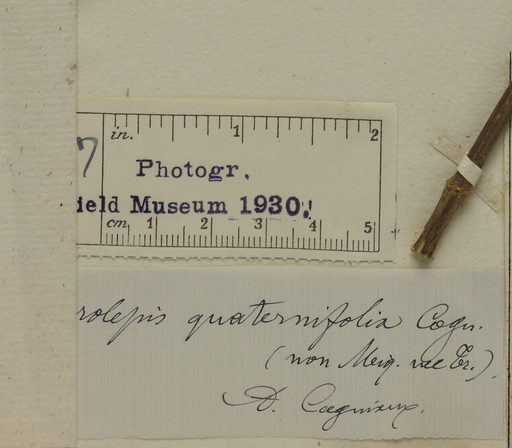 in. 1 2
7
Photogr.
ield Museum 1930.!
cm. 1 2 3 4 5
rolepis quaternifolia Cogn.
(non Miq. nec Tr.)
A. Cogniaux.